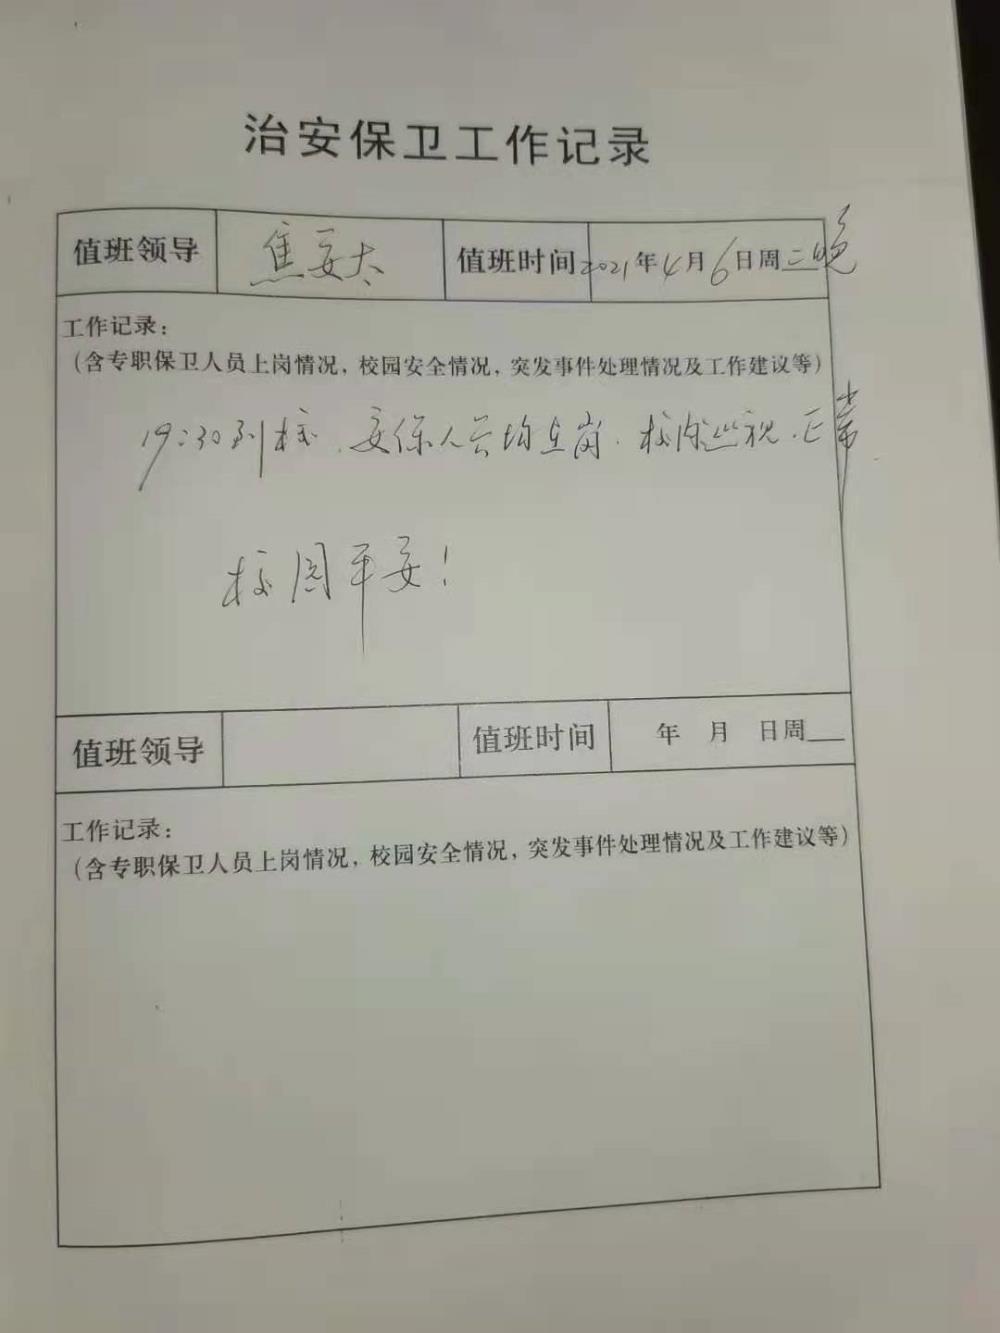 治安保卫工作记录
值班领导 焦安太 值班时间 2021年4月6日周二晚
工作记录：
（含专职保卫人员上岗情况，校园安全情况，突发事件处理情况及工作建议等）
19:30到校、安保人员均在岗.校内巡视.正常.
校园平安！
值班领导 值班时间 年 月 日周
工作记录：
（含专职保卫人员上岗情况，校园安全情况，突发事件处理情况及工作建议等）